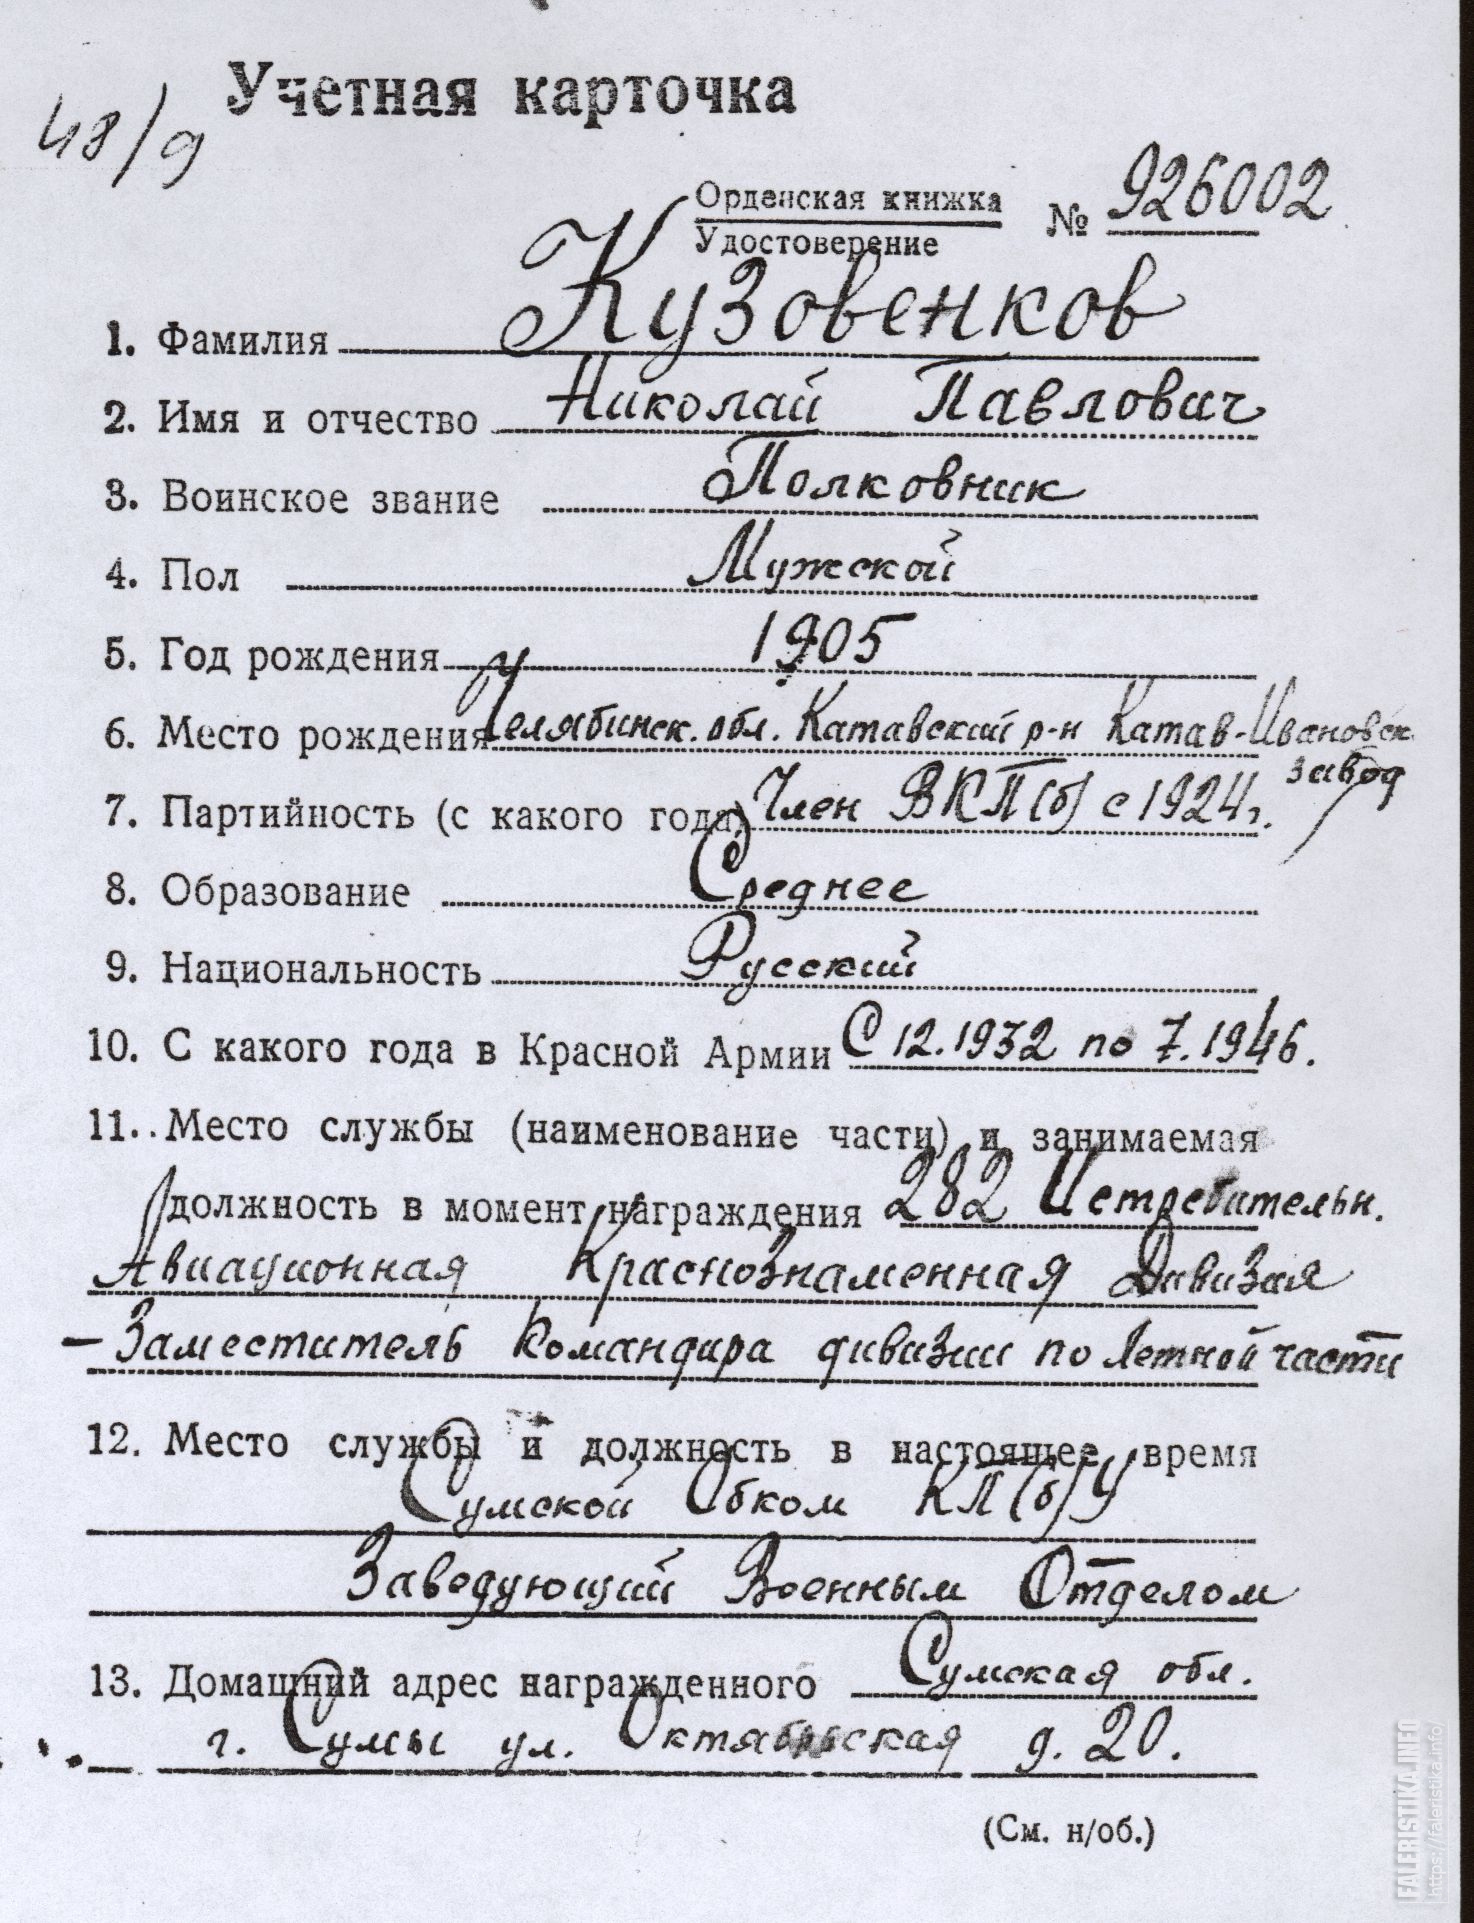 Учетная карточка
48/9
Орденская книжка
Удостоверение
№ 926002
1. Фамилия Кузовенков
2. Имя и отчество Николай Павлович
3. Воинское звание Полковник
4. Пол Мужской
5. Год рождения 1905
6. Место рождения Челябинск. обл. Катавский р-н Катав-Ивановск.
завод
7. Партийность (с какого года) Член ВКП(б) с 1924 г.
8. Образование Среднее
9. Национальность Русский
10. С какого года в Красной Армии С 12.1932 по 7.1946.
11. Место службы (наименование части) и занимаемая
должность в момент награждения 282 Истребительн.
Авиационная Краснознаменная Дивизая
– Заместитель Командира дивизии по Летной части
12. Место службы и должность в настоящее время
Сумской Обком КП(б)У
Заведующий Военным Отделом
13. Домашний адрес награжденного Сумская обл.
г. Сумы ул. Октябрьская д. 20.
(См. н/об.)
FALERISTIKA.INFO
https://faleristika.info